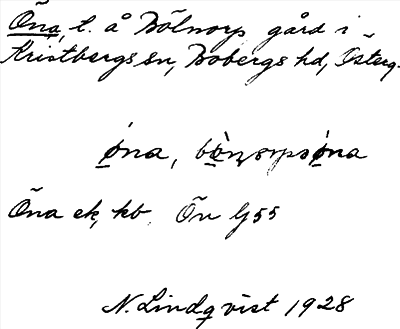 Öna, t. å Bölnorp gård i
Kristbergs sn, Bobergs hd, Österg.
Öna ek, kb. Ön G55
N. Lindqvist 1928